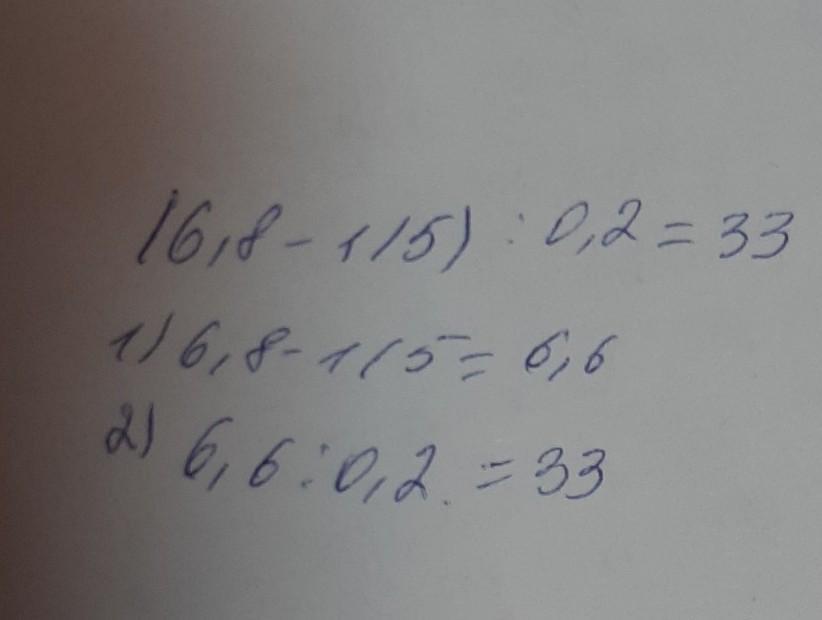 (6,8 - 1/5) : 0,2 = 33
1) 6,8 - 1/5 = 6,6
2) 6,6 : 0,2 = 33